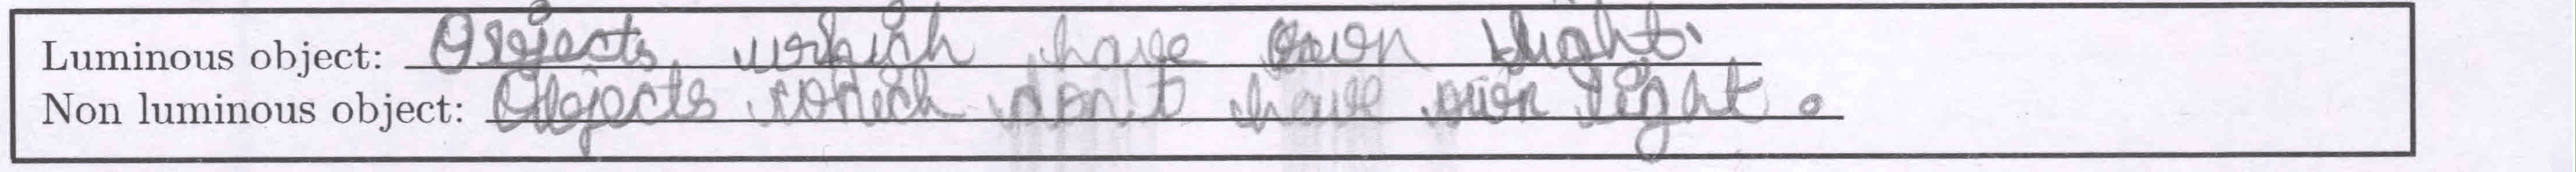 Luminous object: Objects which have own light.
Non luminous object: Objects which don't have own light.